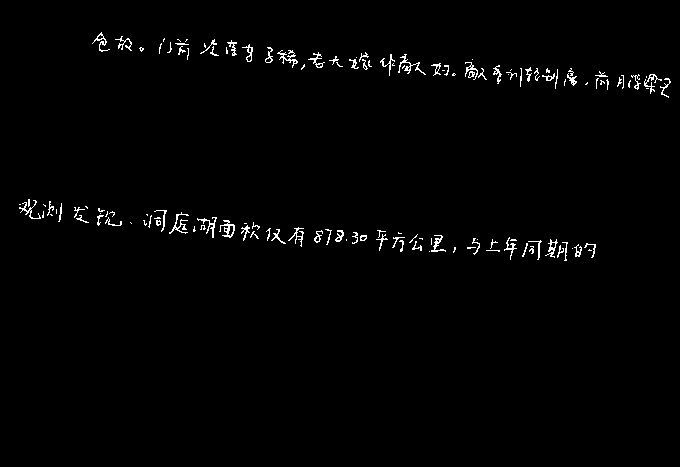 色故。门前冷落车马稀,老大嫁作商人妇。商人重利轻别离,前月浮梁买
观测发现、洞庭湖面积仅有878.30平方公里,与上年同期的